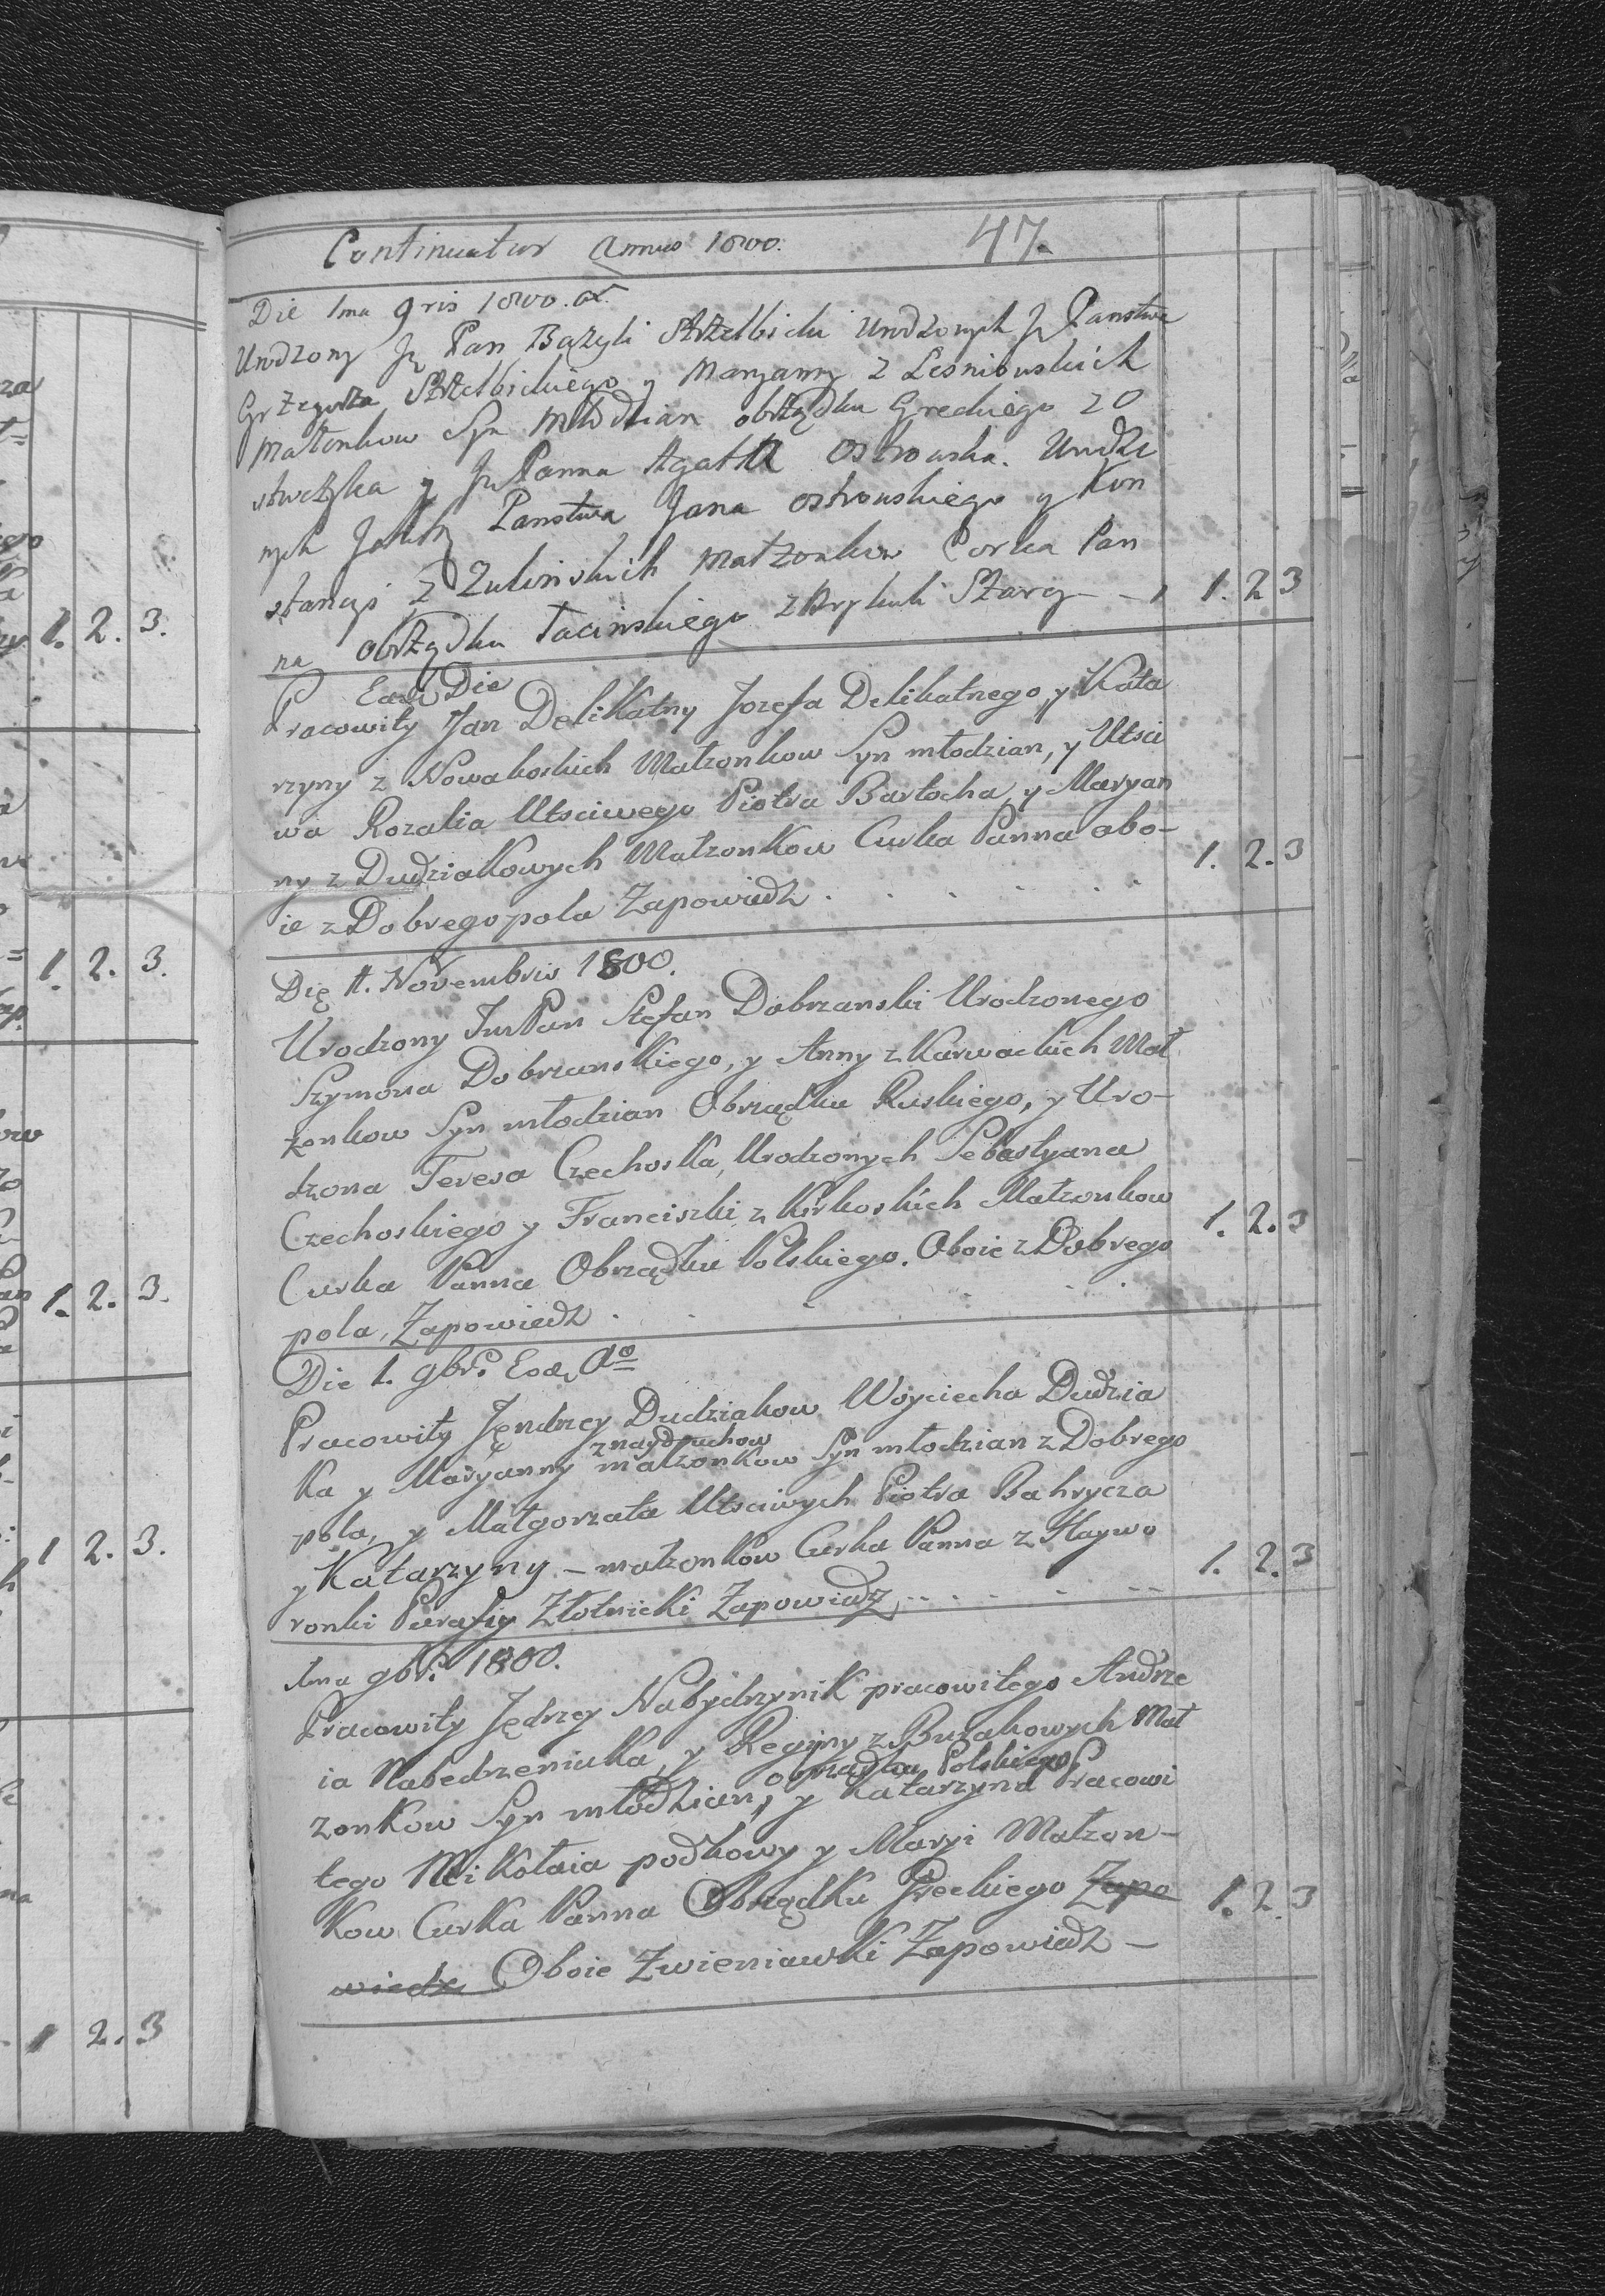 Continuatur Annus 1800. 47.
Die 1ma 9ris 1800.
Urodzony Jp Pan Bazyli Strzelbicki Urodzonych Jp Panstwa
Grzegorza Strzelbickiego y Maryanny z Lesniowskich
Małonkow Syn młodzian obrządku Greckiego z O
y Jp Panna Agatta Ostrowska. Urodzo
nych Panstwa Jana Ostrowskiego y Kon
stancyi z Zulinskich Małzonkow Corka Pan
na obrządku Łacinskiego z Brykuli Starey 1. 2 3
Eadem Die
Pracowity Jan Delikatny Jozefa Delikatnego, y Kata
rzyny z Nowakoskich Małzonkow Syn młodzian, y Utsci
wa Rozalia Utsciwego Piotra Bartocha, y Maryan
ny z Dudziakowych Małzonkow Curka Panna obo-
ie z Dobregopola Zapowiedz . . . . . . 1. 2. 3
Die 1. Novembris 1800.
Urodzony ImPan Stefan Dobrzanski Urodzonego
Szymona Dobrzanskiego, y Anny z Karwackich Mał
zonkow Syn młodzian Obrządku Ruskiego, y Uro-
dzona Teresa Czechoska, Urodzonych Sebastyana
Czechoskiego y Franciszki z Kirkoskich Małzonkow
Curka Panna Obrządku Polskiego. Oboie z Dobrego 1. 2. 3
pola, Zapowiedz . . . . . .
Die 1. 9br. Eod. Ao
Pracowity Jendrzey Dudziakow Woyciecha Dudzia
z nayduchow
ka y Maryanny małzonkow Syn młodzian z Dobrego
pola, y Małgorzata Utsciwych Piotra Bahrycza
y Katarzyny - małzonkow Curka Panna z Haywo
ronki Parafiy Złotnicki Zapowiedz . . . . . 1. 2. 3
1ma 9br. 1800.
Pracowity Jędrzey Nabydrzynik pracowitego Andrze
ia Nabedrzeniaka, y Reginy z Buzakowych Mał
obrządku Polskiego
zonkow Syn młodzian, y Katarzyna Pracowi
tego Mikołaia podkowy y Maryi Małzon-
kow Curka Panna Obrządku Greckiego Zapo 1. 2. 3
wiedz Oboie Zwieniawki Zapowiedz -
1. 2. 3.
1. 2. 3.
1. 2. 3.
1 2. 3.
1 2. 3